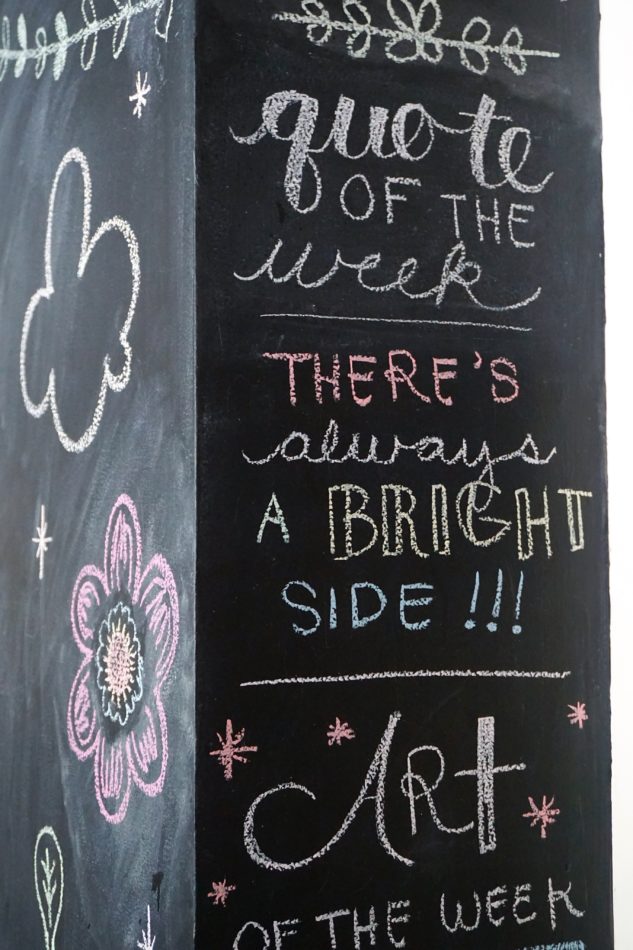 quote
OF THE
week
THERE'S
always
A BRIGHT
SIDE !!!
ART
OF THE WEEK